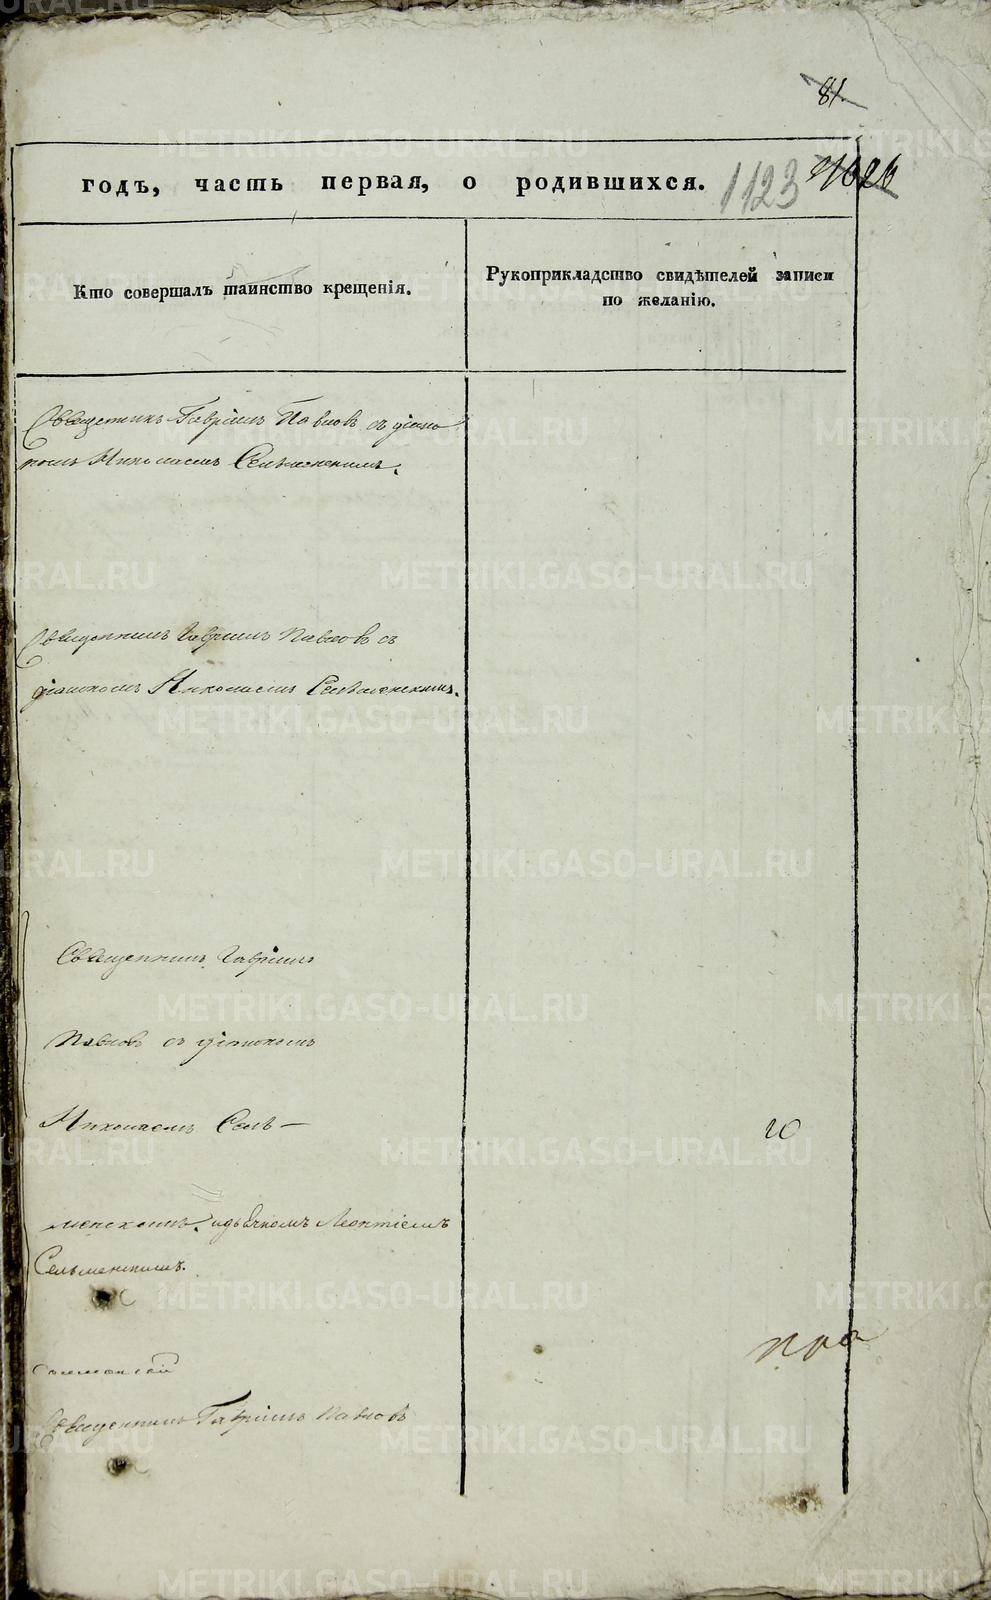 81.
годъ, часть первая, о родившихся. 1123
Кто совершалъ таинство крещенія.
Рукоприкладство свидѣтелей записи
по желанію.
Священникъ Гавріилъ Павловъ съ діако
номъ Николаемъ Сельменскимъ.
Священникъ Гавріилъ Павловъ съ
діакономъ Николаемъ Сельменскимъ.
Священникъ Гавріилъ
Павловъ съ діакономъ
Николаемъ Сель—
10
менскимъ. и дьячкомъ Леонтіемъ
Сельменскимъ.
Священникъ Гавріилъ Павловъ
METRIKI.GASO-URAL.RU